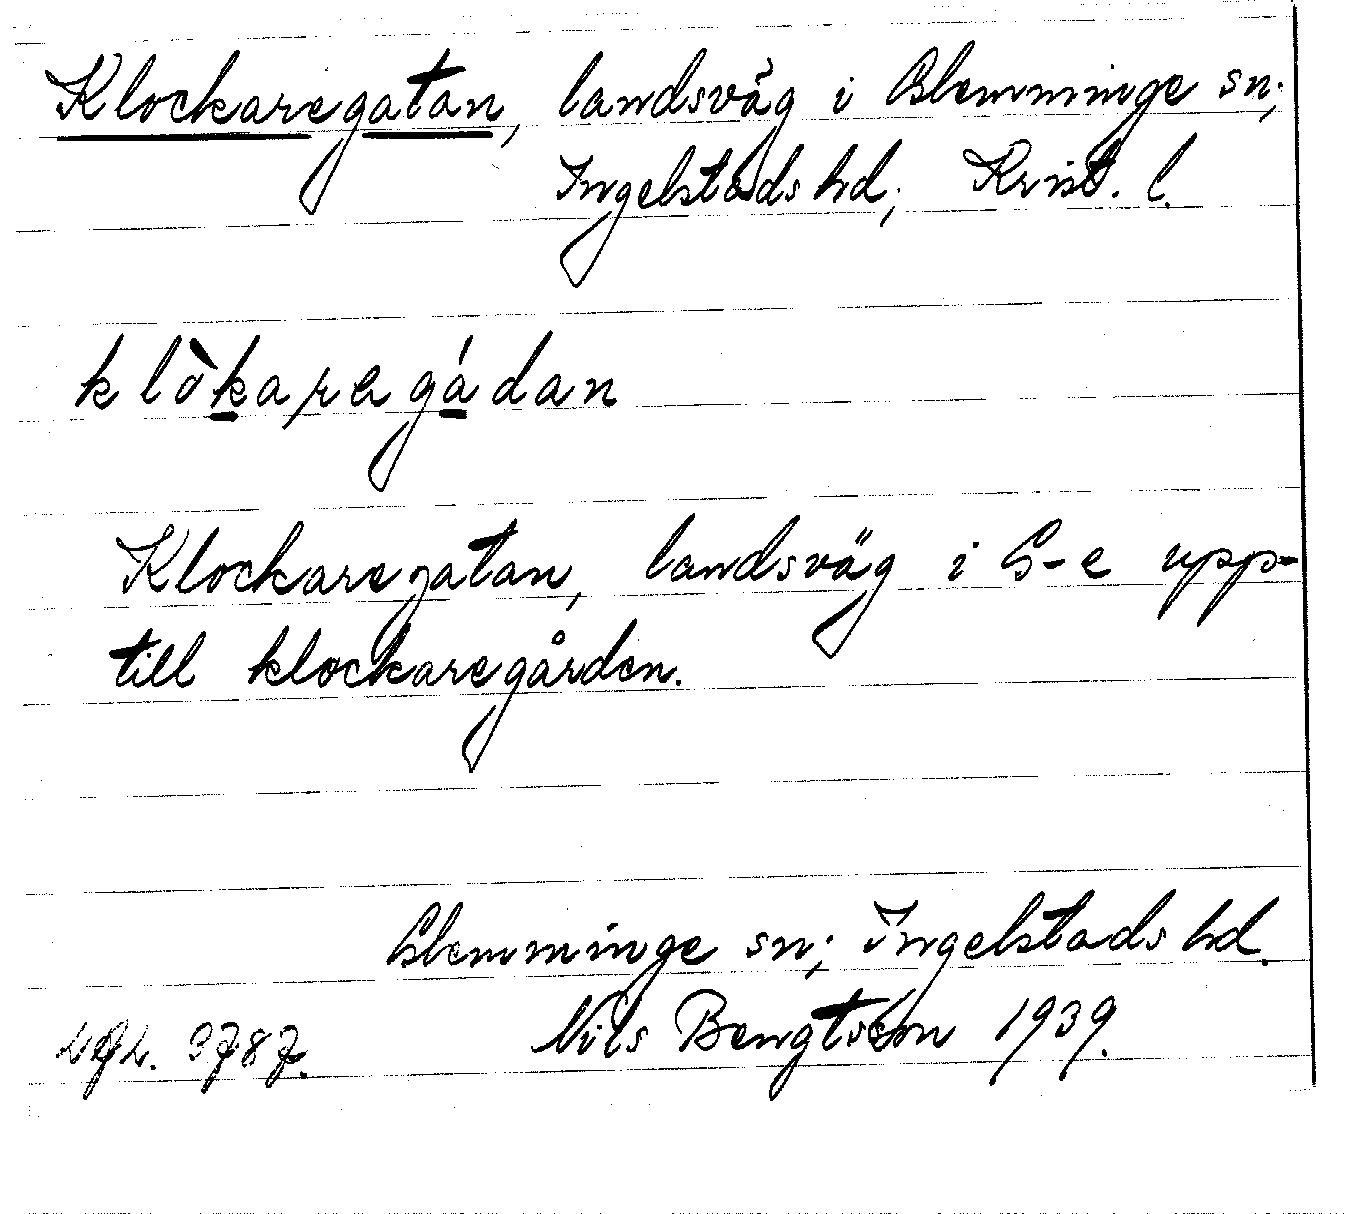 Klockaregatan, landsväg i Glemminge sn;
Ingelstads hd; Krist. l.
klòkaregádan
Klockaregatan, landsväg i G-e upp-
till klockaregården.
Glemminge sn; Ingelstads hd.
Nils Bengtsson 1939.
3787.